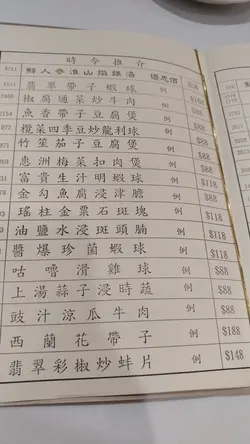 時令推介
鮮人參淮山燉雞湯 優惠價
翡翠帶子蝦球 例 $118
椒腐通菜炒牛肉 例 $88
魚香帶子豆腐煲 例 $88
欖菜四季豆炒龍利球 例 $88
竹笙茄子豆腐煲 例 $88
惠洲梅菜扣肉煲 例 $88
富貴生汁明蝦球 例 $118
金勾魚腐浸津膽 例 $88
瑤柱金粟石斑塊 例 $118
油鹽水浸斑頭腩 例 $118
醬爆珍菌蝦球 例 $118
咕嚕滑雞球 例 $88
上湯蒜子浸時蔬 例 $88
豉汁涼瓜牛肉 例 $88
西蘭花帶子 例 $118
翡翠彩椒炒蚌片 例 $148